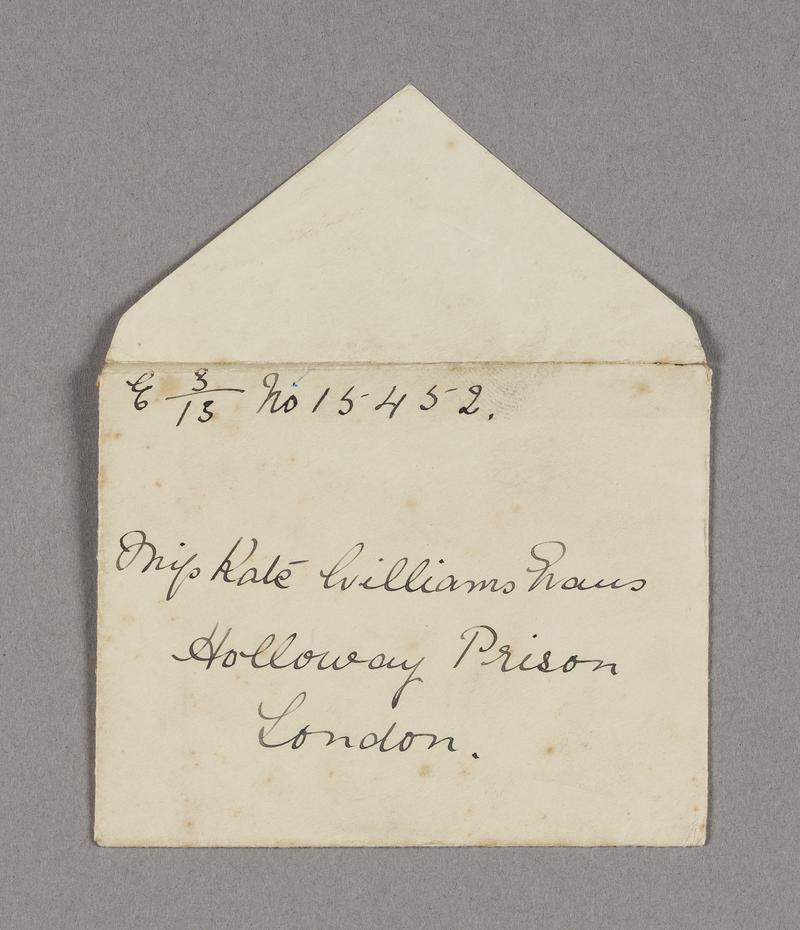 E 3/13 No 15452.
Miss Kate Williams Evans
Holloway Prison
London.